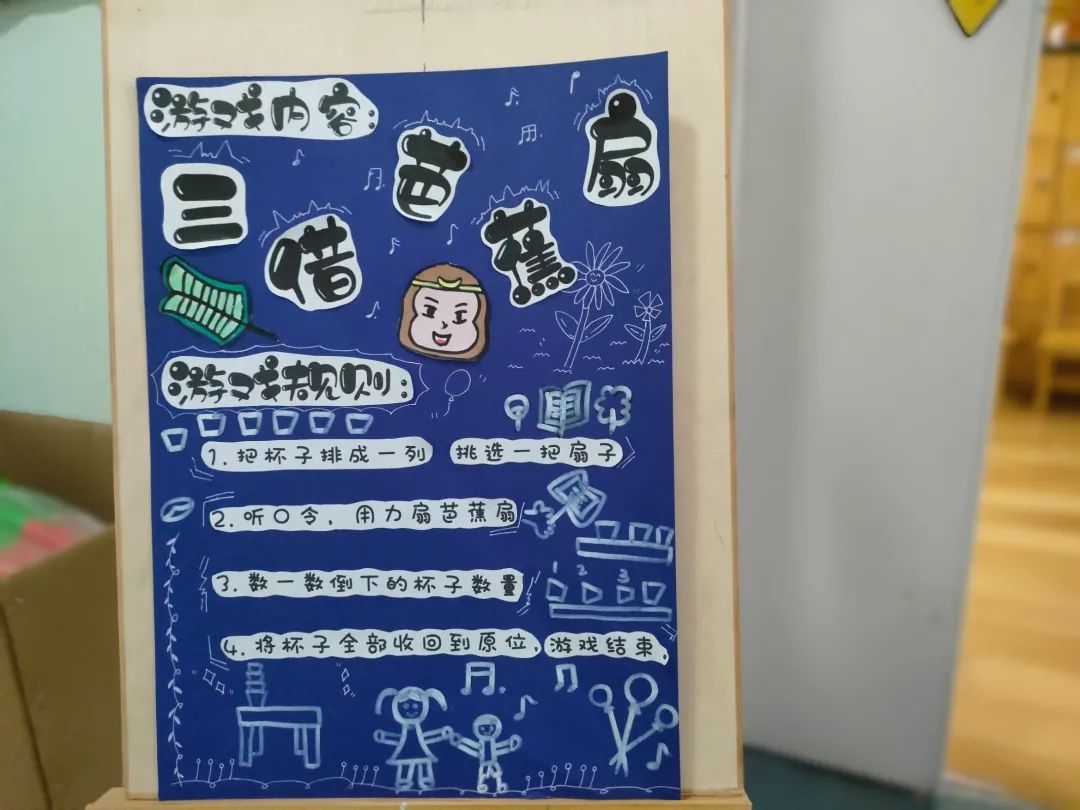 游戏内容
三借芭蕉扇
游戏规则
1. 把杯子排成一列 挑选一把扇子
2. 听口令，用力扇芭蕉扇
3. 数一数倒下的杯子数量
1 2 3
4. 将杯子全部收回到原位，游戏结束.